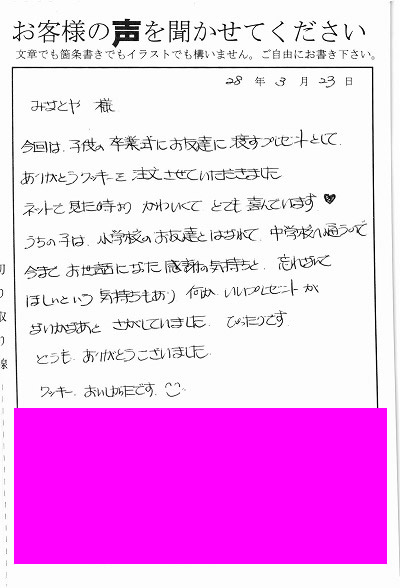 お客様の声を聞かせてください
文章でも箇条書きでもイラストでも構いません。ご自由にお書き下さい。
28年3月23日
みさとや 様
今回は、子供の卒業式にお友達に渡すプレゼントとして、
ありがとうクッキーを注文させていただきました
ネットで見た時より かわいくて とても喜んでいます♥
うちの子は、小学校のお友達とはなれて、中学校へ通うので
今まで お世話になった感謝の気持ちと、忘れないで
ほしいという 気持ちもあり 何か いいプレゼントが
ないかなあと さがしていました。ぴったりです。
どうも ありがとうございました。
クッキー、おいしかったです。
切り取り線